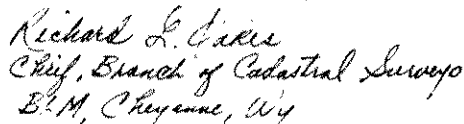 Richard L. Oakes
Chief, Branch of Cadastral Surveys
BLM, Cheyenne, Wy